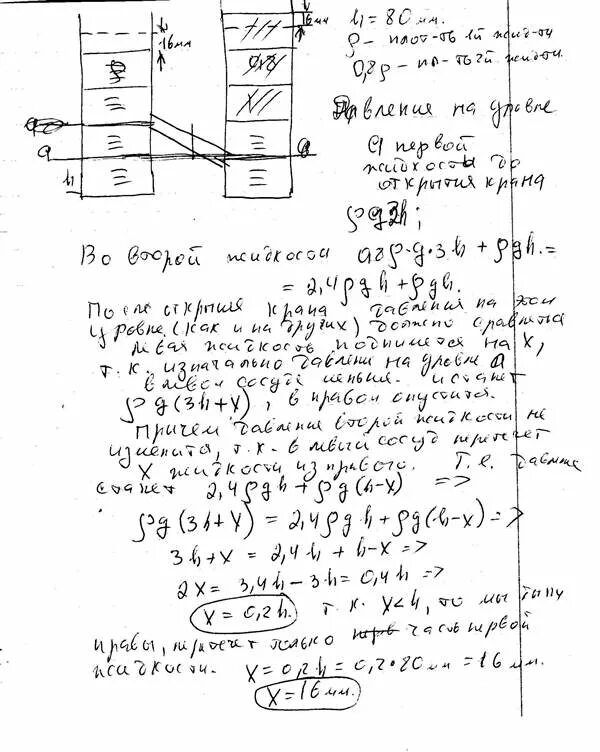 16мм
16мм
a
a
h
h = 80 мм.
ρ – плот-ть 1й жид-ти
0,8ρ – пл-ть 2й жидкти.
Давление на уровне
a первой
жидкость до
открытия крана
ρg3h;
Во второй жидкости 0,8ρ·g·3h + ρgh. =
= 2,4ρgh + ρgh.
После открытия крана давления на этом
уровне (как и на других) должно сравняться
Левая жидкость поднимется на x,
т.к. изначально давлени на уровне a
в левом сосуде меньше. и станет
ρg(3h+x), в правом опустится.
Причем давление второй жидкости не
изменится, т.к. в левый сосуд перетечет
x жидкости из правого. Т.е. давлние
станет 2,4ρgh + ρg(h-x) =>
ρg(3h+x) = 2,4ρgh + ρg(h-x) =>
3h+x = 2,4h + h-x =>
2x = 3,4h – 3h = 0,4h =>
x = 0,2h. т.к. x<h, то мы были
правы, перетечет только часть первой
жидкости. x = 0,2h = 0,2·80мм = 16мм.
x = 16мм.